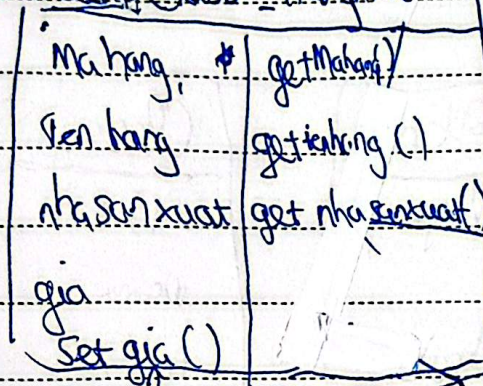 Mahang, getMahang()
Ten hang gettenhang ()
nhasanxuat get nhasanxuat()
gia
set gia ()